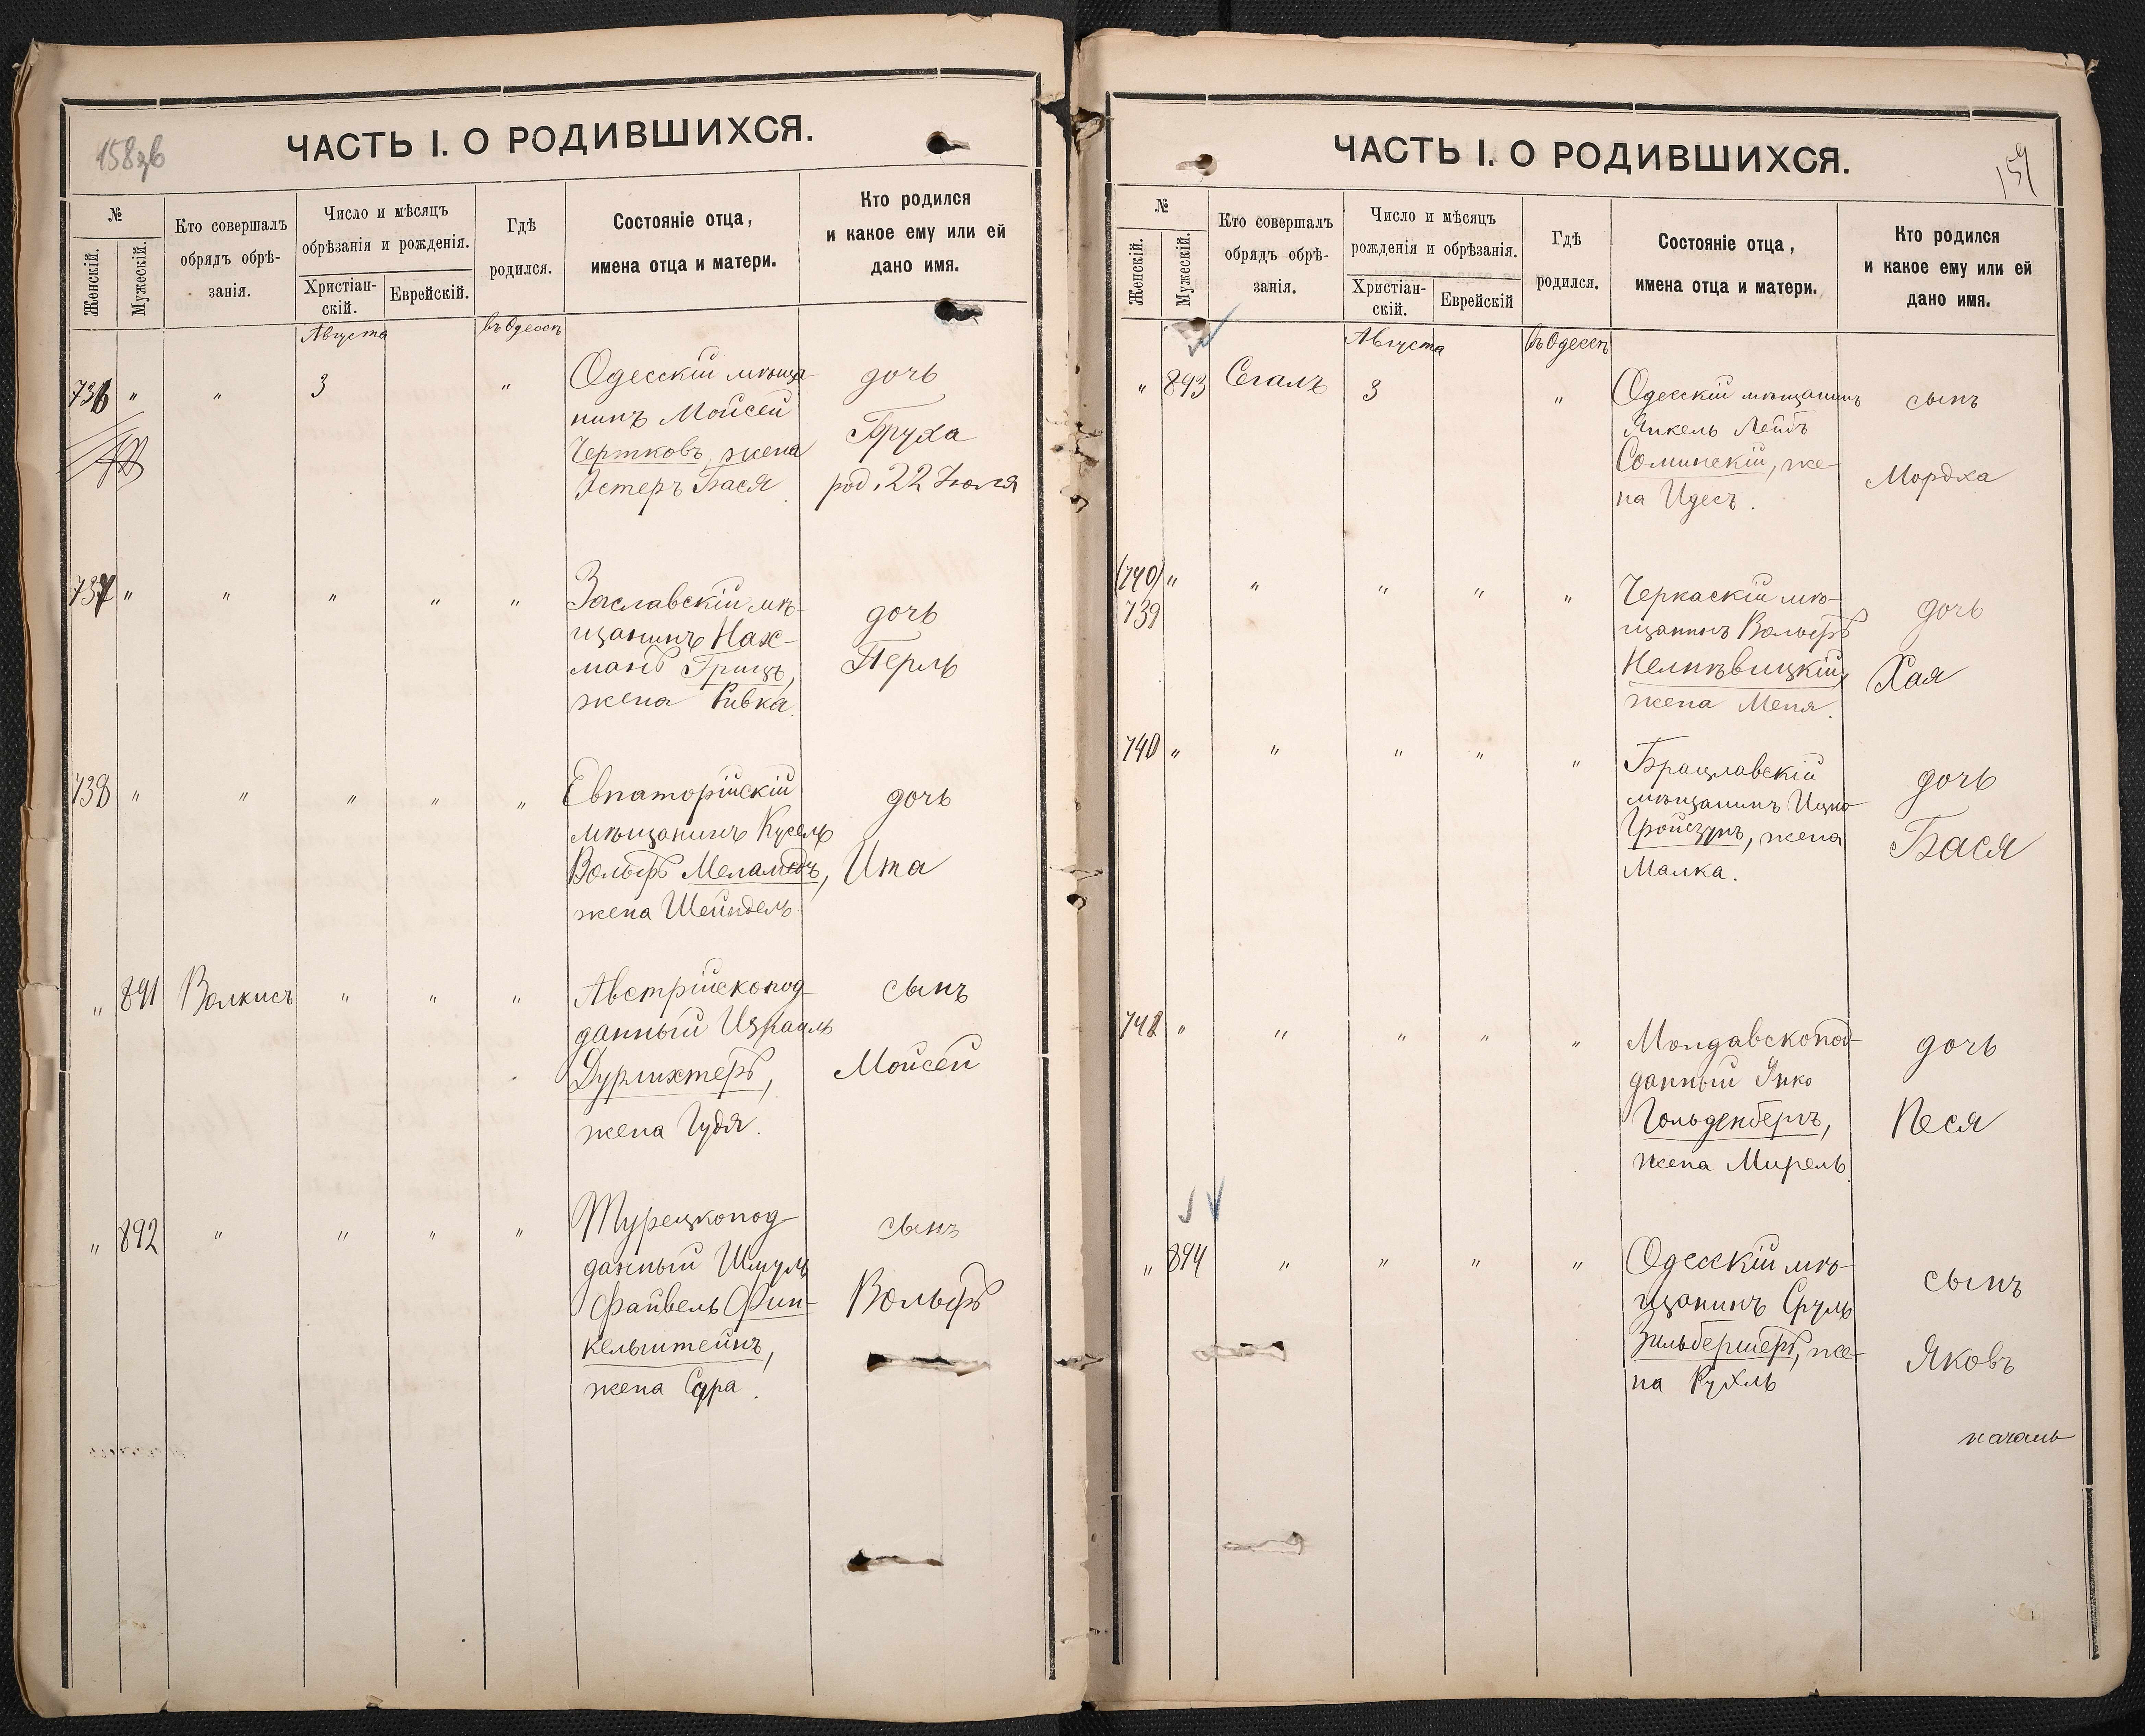 158 об
ЧАСТЬ I. О РОДИВШИХСЯ.
№
Женскій.
Мужескій.
Кто совершалъ
обрядъ обрѣ-
занія.
Число и мѣсяцъ
обрѣзанія и рожденія.
Христіан-
скій.
Еврейскій.
Гдѣ
родился.
Состояніе отца,
имена отца и матери.
Кто родился
и какое ему или ей
дано имя.
Августа
въ Одессѣ
736 " " 3 "
Одесскій мѣща-
нинъ Мойсей
Чертковъ, жена
Эстеръ Бася
дочь
Бруха
род. 22 Іюля
737 " " " " "
Заславскій мѣ-
щанинъ Нах-
манъ Грицъ,
жена Ривка.
дочь
Перль
738 " " " " "
Евпаторійскій
мѣщанинъ Кусель
Вольфъ Меламедъ,
жена Шейндель.
дочь
Ита
" 891 Волкисъ " " "
Австрійскопод-
данный Израиль
Дурлихтеръ,
жена Гудя.
сынъ
Мойсей
" 892 " " " "
Турецкопод-
данный Шмуль
Файвель Фин-
кельштейнъ,
жена Сура.
сынъ
Вольфъ
159
ЧАСТЬ I. О РОДИВШИХСЯ.
№
Женскій.
Мужескій.
Кто совершалъ
обрядъ обрѣ-
занія.
Число и мѣсяцъ
рожденія и обрѣзанія.
Христіан-
скій.
Еврейскій
Гдѣ
родился.
Состояніе отца,
имена отца и матери.
Кто родился
и какое ему или ей
дано имя.
Августа
въ Одессѣ
" 893 Сегалъ 3 "
Одесскій мѣщанинъ
Янкель Лейбъ
Соминскій, же-
на Идесъ.
сынъ
Мордха
(740) " " " " "
739
Черкаскій мѣ-
щанинъ Вольфъ
жена Меня.
дочь
Хая
740 " " " " "
Брацлавскій
мѣщанинъ Ицко
Гройсунъ, жена
Малка.
дочь
Бася
741 " " " " "
Молдавскопод-
данный Янко
Гольденбергъ,
жена Мирель
дочь
Песя
" 894 " " " "
Одесскій мѣ-
щанинъ Сруль
Зильбершеръ, же-
на Рухль
сынъ
Яковъ